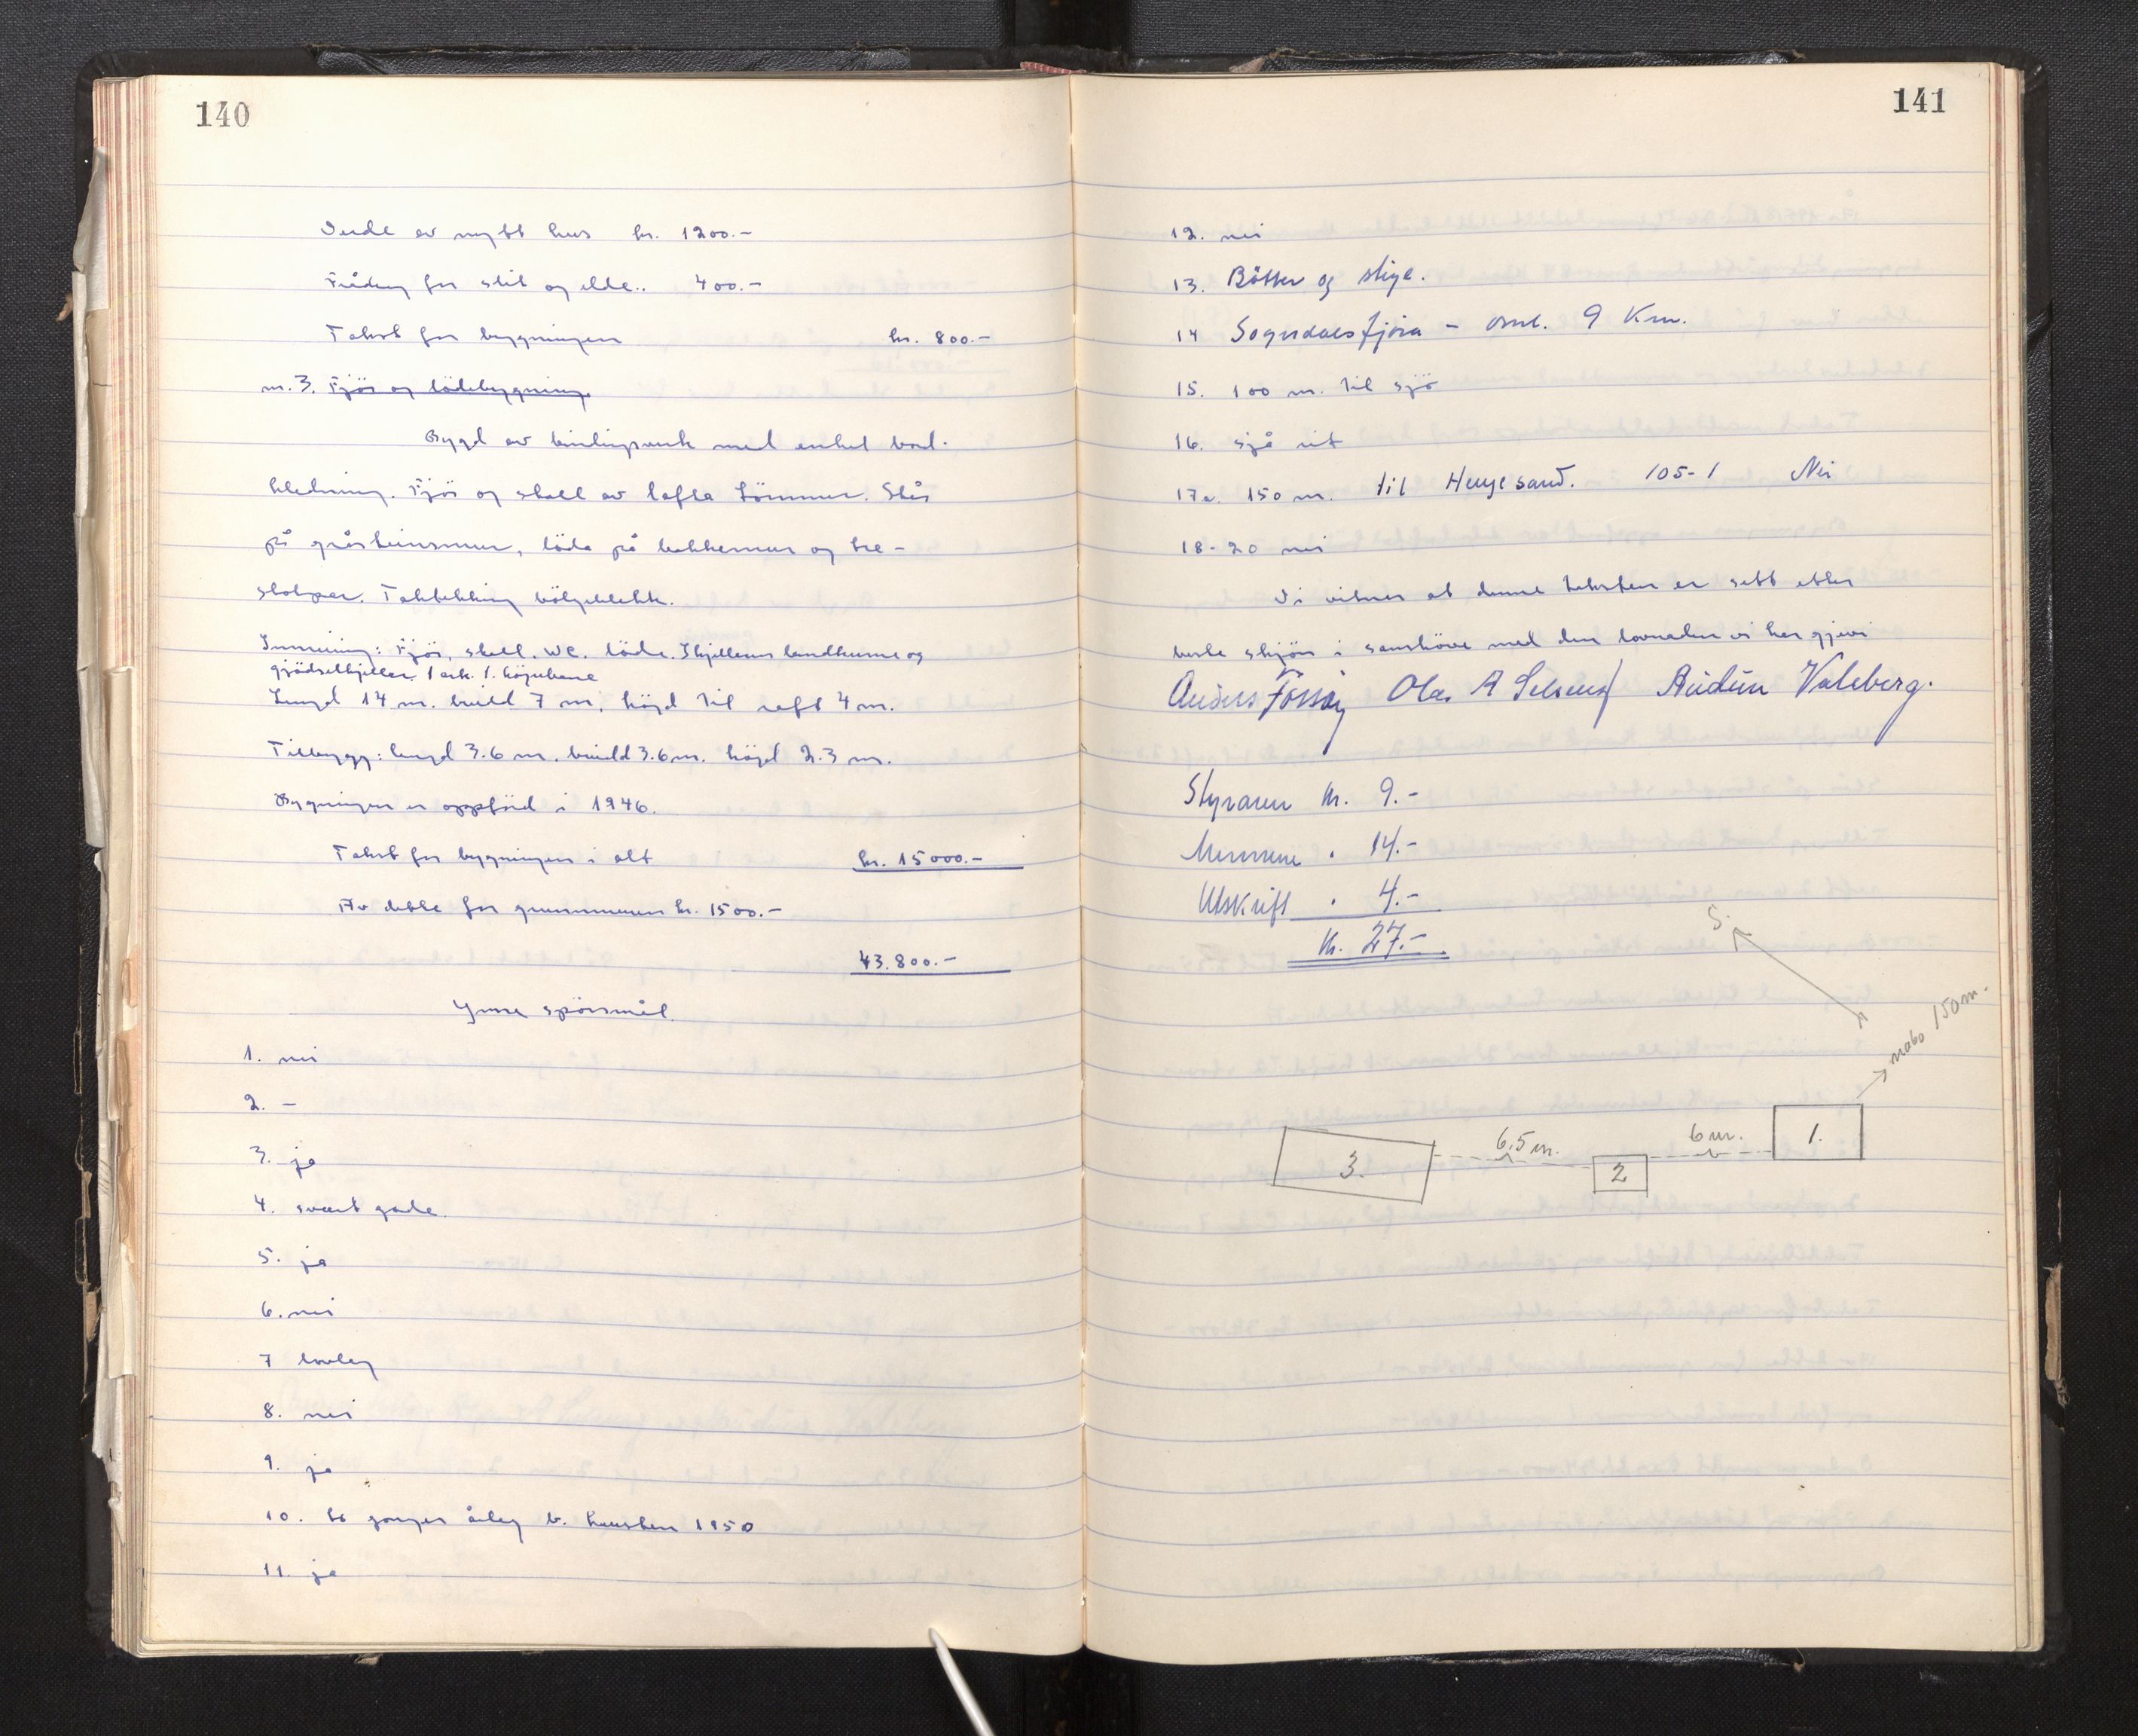 140
av nytt hus kr. 1200.-
Frådrag for slit og elde.. 400.-
Takst for bygningen kr. 800.-
nr. 3. Fjös og lödebygning.
Bygd av bindingsverk med enkel bord-
kledning. Fjös og stall av lafta tömmer. Står
på gråsteinsmur, löda på bakkemur og tre-
stolpar. Taktekking bölgeblekk.
Innreiing: Fjös, stall, WC. löde. I kjelleren landkume og
gjödselkjellar. 1 ark. 1. höjnbane
Lengd 14 m. breidd 7 m, högd til raft 4 m.
Tilbygg: lengd 3.6 m. breidd 3.6 m. högd 2.3 m.
Bygningen er oppförd i 1946.
Takst for bygningen i alt kr. 15000.-
Av dette for grunnmuren kr. 1500.-
43.800.-
Ymse spörsmål.
1. nei
2. -
3. ja
4. svært gode
5. ja
6. nei
7 lovleg
8. nei
9. ja
10. to gonger årleg hausten 1950
11. ja
141
12. nei
13. Bötter og stige.
14 Sogndalsfjöra - oml. 9 Km.
15. 100 m. til sjö
16. sjå rit
17a. 150 m. til Haugesand. 105-1 Nei
18-20 nei
Vi vitnar at denne taksten er sett etter
beste skjön i samhöve med den lovnaden vi har gjevi
Anders Fossøy Olav A Selseng Audun Valeberg.
Styraren kr. 9.-
Mennene " 14.-
Utskrift " 4.-
Kr. 27.-
S.
nabo 150 m.
3. 6.5 m. 2 6 m. 1.